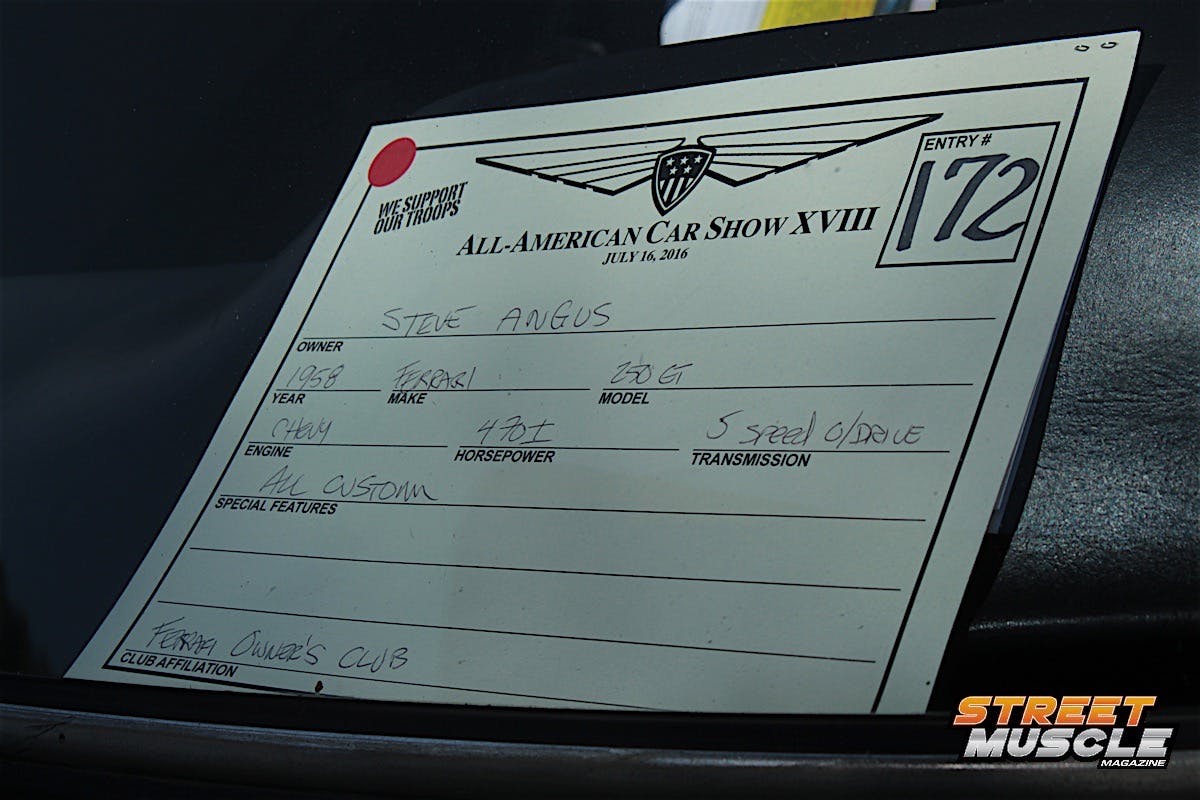 WE SUPPORT
OUR TROOPS
ENTRY #
172
ALL-AMERICAN CAR SHOW XVIII
JULY 16, 2016
STEVE ANGUS
OWNER
1958 FERRARI 250 GT
YEAR MAKE MODEL
CHEVY 470I 5 SPEED O/DRIVE
ENGINE HORSEPOWER TRANSMISSION
ALL CUSTOM
SPECIAL FEATURES
FERRARI OWNER'S CLUB
CLUB AFFILIATION
STREET
MUSCLE
MAGAZINE